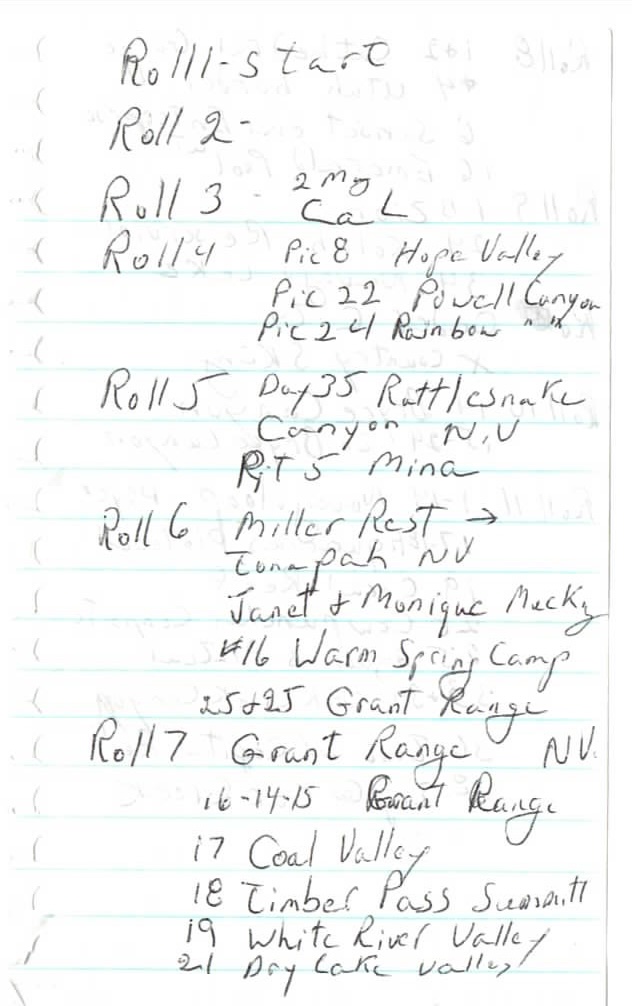 Roll 1-start
Roll 2-
Roll 3 - 2 mg
CaL
Roll 4 Pic 8 Hope Valley
Pic 22 Powell Canyon
Pic 24 Rainbow " "
Roll 5 Day 35 Rattlesnake
Canyon N.V
P,T 5 Mina
Roll 6 Miller Rest →
Tonapah NV
Janet & Monique Mecky
#16 Warm Spring Camp
25+25 Grant Range
Roll 7 Grant Range NV.
16-14-15 Grant Range
17 Coal Valley
18 Timber Pass Summitt
19 White River Valley
21 Dry Lake valley